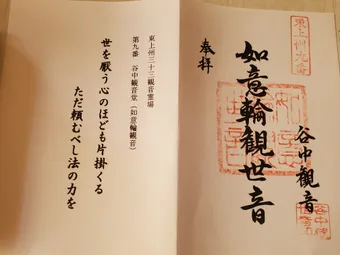 東上州九番
奉拝
如意輪觀世音
谷中觀音
東上州三十三観音霊場
第九番　谷中観音堂（如意輪観音）
世を厭う心のほども片掛くる
ただ頼むべし法の力を